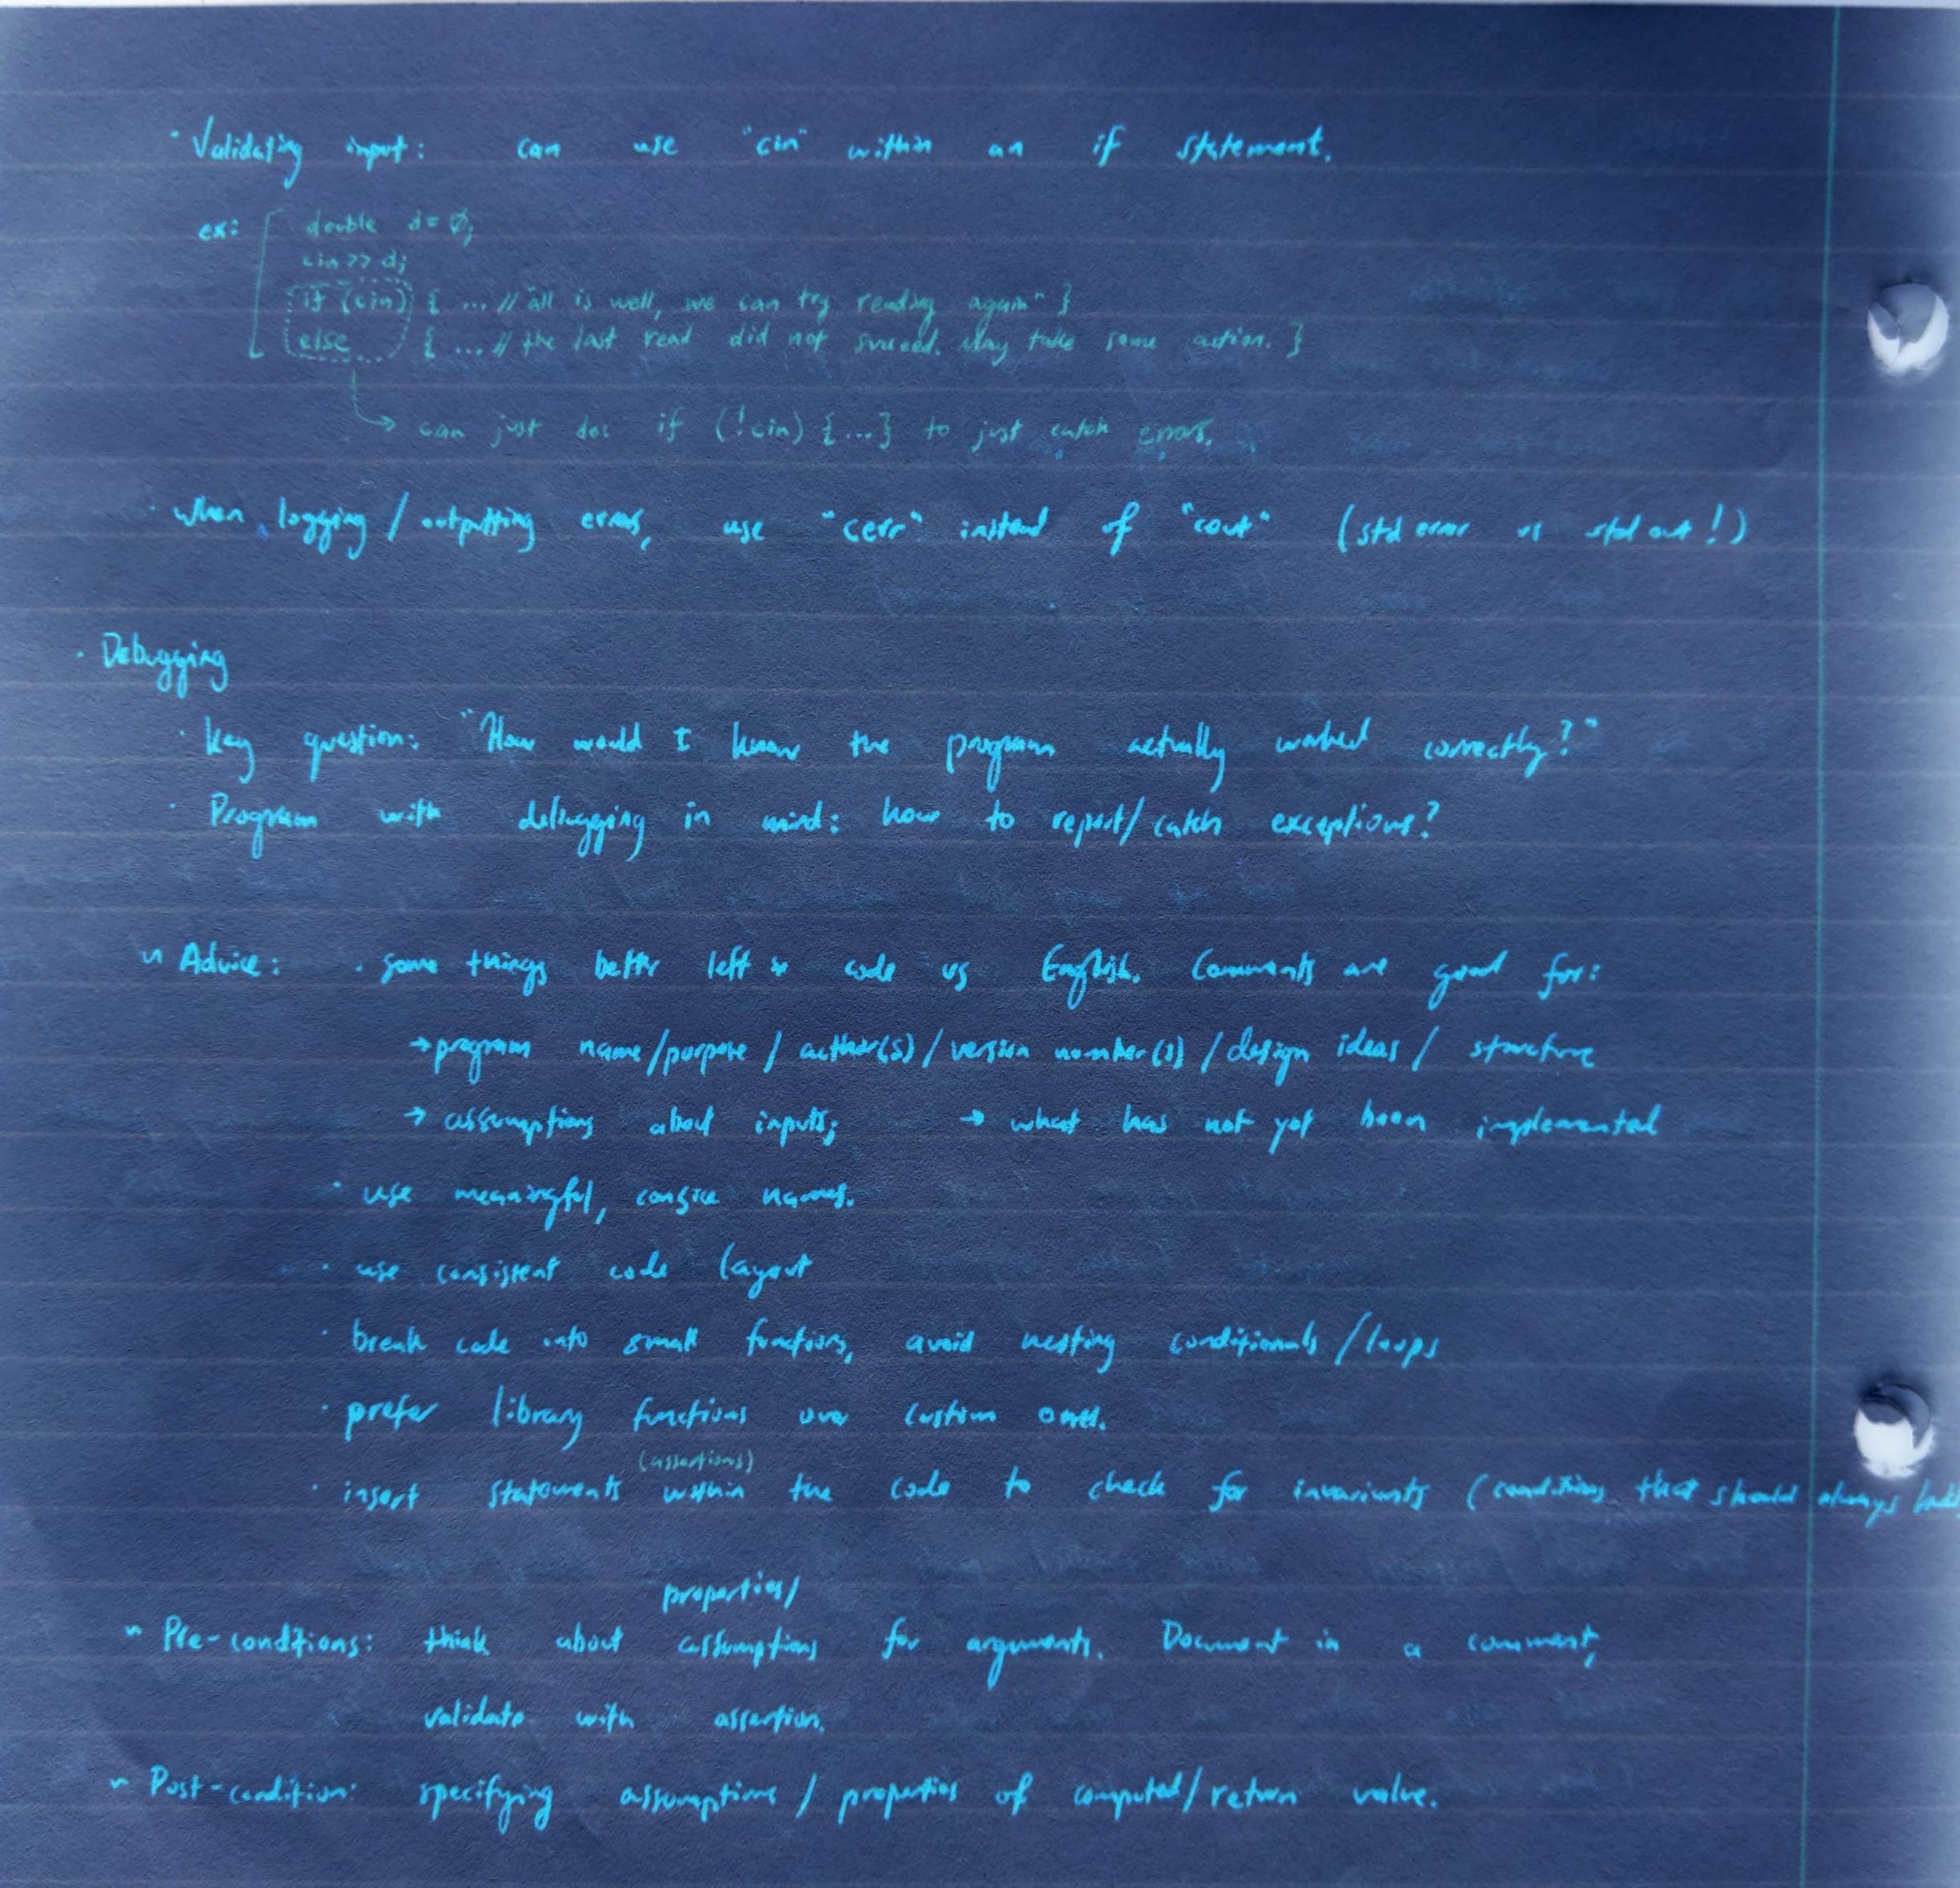 · Validating input: can use "cin" within an if statement.
ex: double d = 0;
cin >> d;
if (cin) { ... // "all is well, we can try reading again" }
else { ... // the last read did not succeed. May take some action. }
can just do: if (!cin) {...} to just catch errors.
· when logging / outputting errors, use "cerr" instead of "cout" (std error vs std out!)
· Debugging
· Key question: "How would I know the program actually worked correctly?"
· Program with debugging in mind: how to report/catch exceptions?
~ Advice: · some things better left to code vs English. Comments are good for:
→ program name/purpose / author(s) / version number(s) / design ideas / structure
→ assumptions about inputs; → what has not yet been implemented
· use meaningful, consice names.
· use consistent code layout
· break code into small functions, avoid nesting conditionals / loops
· prefer library functions over custom ones.
(assertions)
· insert statements within the code to check for invariants (conditions that should always hold
properties/
~ Pre-conditions: think about assumptions for arguments. Document in a comment,
validate with assertion.
~ Post-condition: specifying assumptions / properties of computed/return value.